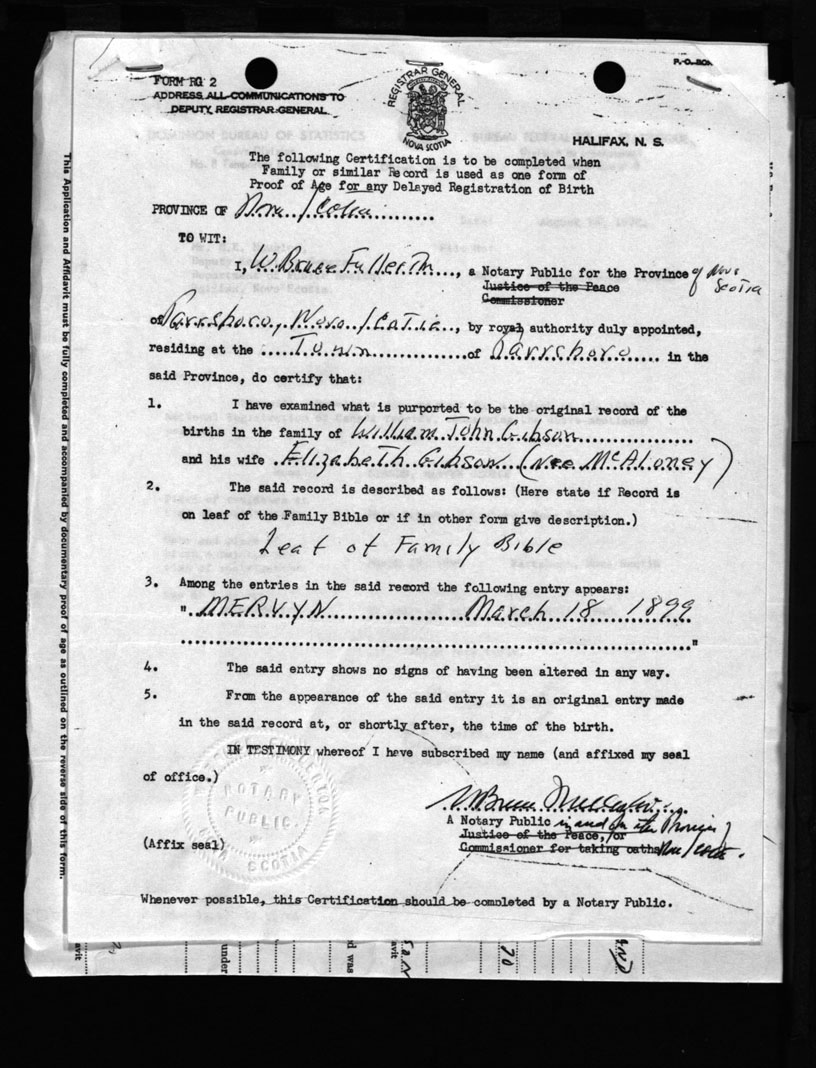 FORM RG 2
ADDRESS ALL COMMUNICATIONS TO
DEPUTY REGISTRAR GENERAL
REGISTRAR GENERAL
NOVA SCOTIA
P.O. BOX
HALIFAX, N. S.
The following Certification is to be completed when
Family or similar Record is used as one form of
Proof of Age for any Delayed Registration of Birth
PROVINCE OF Nova Scotia
TO WIT:
I, W. Bruce Fullerton, a Notary Public for the Province of Nova Scotia
Justice of the Peace
Commissioner
of Parrsboro, Nova Scotia, by royal authority duly appointed,
residing at the Town of Parrsboro in the
said Province, do certify that:
1. I have examined what is purported to be the original record of the
births in the family of William John Gibson
and his wife Elizabeth Gibson (nee McAloney)
2. The said record is described as follows: (Here state if Record is
on leaf of the Family Bible or if in other form give description.)
Leaf of Family Bible
3. Among the entries in the said record the following entry appears:
" MERVYN March 18 1899
"
4. The said entry shows no signs of having been altered in any way.
5. From the appearance of the said entry it is an original entry made
in the said record at, or shortly after, the time of the birth.
IN TESTIMONY whereof I have subscribed my name (and affixed my seal
of office.)
NOTARY
PUBLIC
NOVA SCOTIA
W Bruce Fullerton
A Notary Public in and for the Province of
Justice of the Peace, or
Commissioner for taking oaths Nova Scotia.
(Affix seal)
Whenever possible, this Certification should be completed by a Notary Public.
This Application and Affidavit must be fully completed and accompanied by documentary proof of age as outlined on the reverse side of this form.
avit
under
d was
avit
70